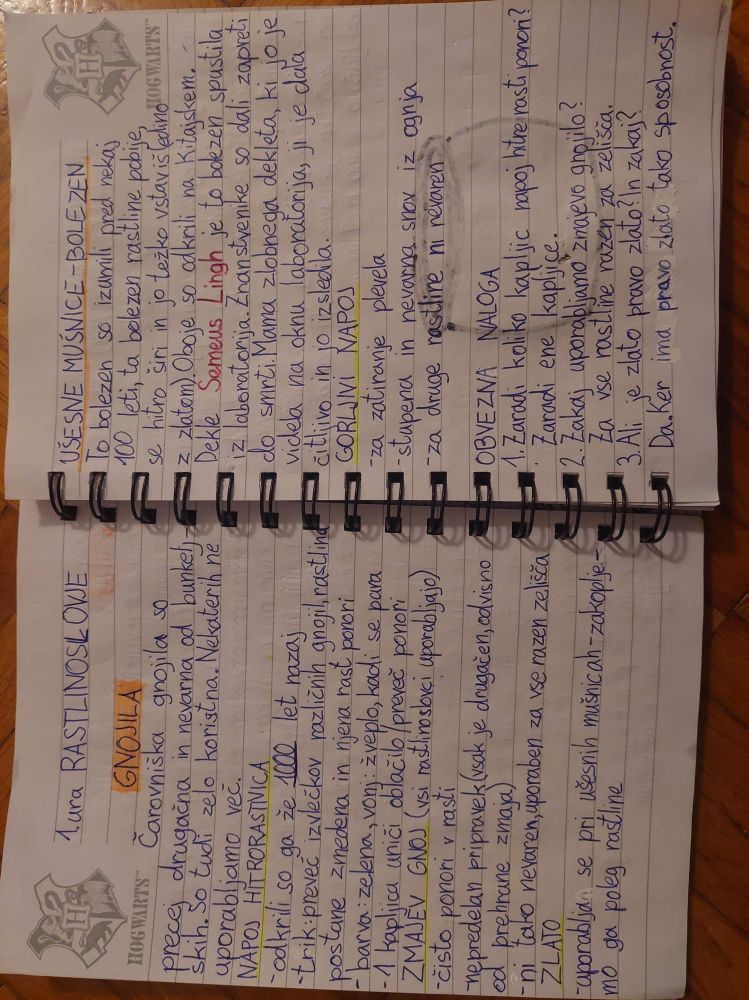 HOGWARTS™
1.ura RASTLINOSLOVJE
GNOJILA
Čarovniška gnojila so
precej drugačna in nevarna od bunkelj-
skih. So tudi zelo koristna. Nekaterih ne
uporabljamo več.
NAPOJ HITRORASTVICA
-odkrili so ga že 1000 let nazaj
-trik: preveč izvlečkov različnih gnojil, rastlina
postane zmedena in njena rast ponori
-barva: zelena, vonj: žveplo, kadi se para
-1 kapljica uniči oblačilo/preveč ponori
ZMAJEV GNOJ (vsi rastlinoslovci uporabljajo)
-čisto ponori v rasti
-nepredelan pripravek (vsak je drugačen, odvisno
od prehrane zmaja)
-ni tako nevaren, uporaben za vse razen zelišča
ZLATO
-uporabljan se pri ušesnih mušnicah-zakoplje-
mo ga poleg rastline
HOGWARTS™
UŠESNE MUŠNICE-BOLEZEN
To bolezen so izumili pred nekaj
100 leti, ta bolezen rastline pobije,
se hitro širi in jo težko vstaviš(edino
z zlatom). Oboje so odkrili na Kitajskem.
Dekle Semeus Lingh je to bolezen spustila
iz laboratorija. Znanstvenike so dali zapreti
do smrti. Mama zlobnega dekleta, ki jo je
videla na oknu laboratorija, ji je dala
čitljivo in jo izsledila.
GORLJIVI NAPOJ
-za zatiranje plevela
-stupena in nevarna snov iz ognja
-za druge rastline ni nevaren
OBVEZNA NALOGA
1. Zaradi koliko kapljic napoj hitre rasti ponori?
Zaradi ene kapljice.
2. Zakaj uporabljamo zmajevo gnojilo?
Za vse rastline razen za zelišča.
3. Ali je zlato pravo zlato? In zakaj?
Da. Ker ima pravo zlato tako sposobnost.